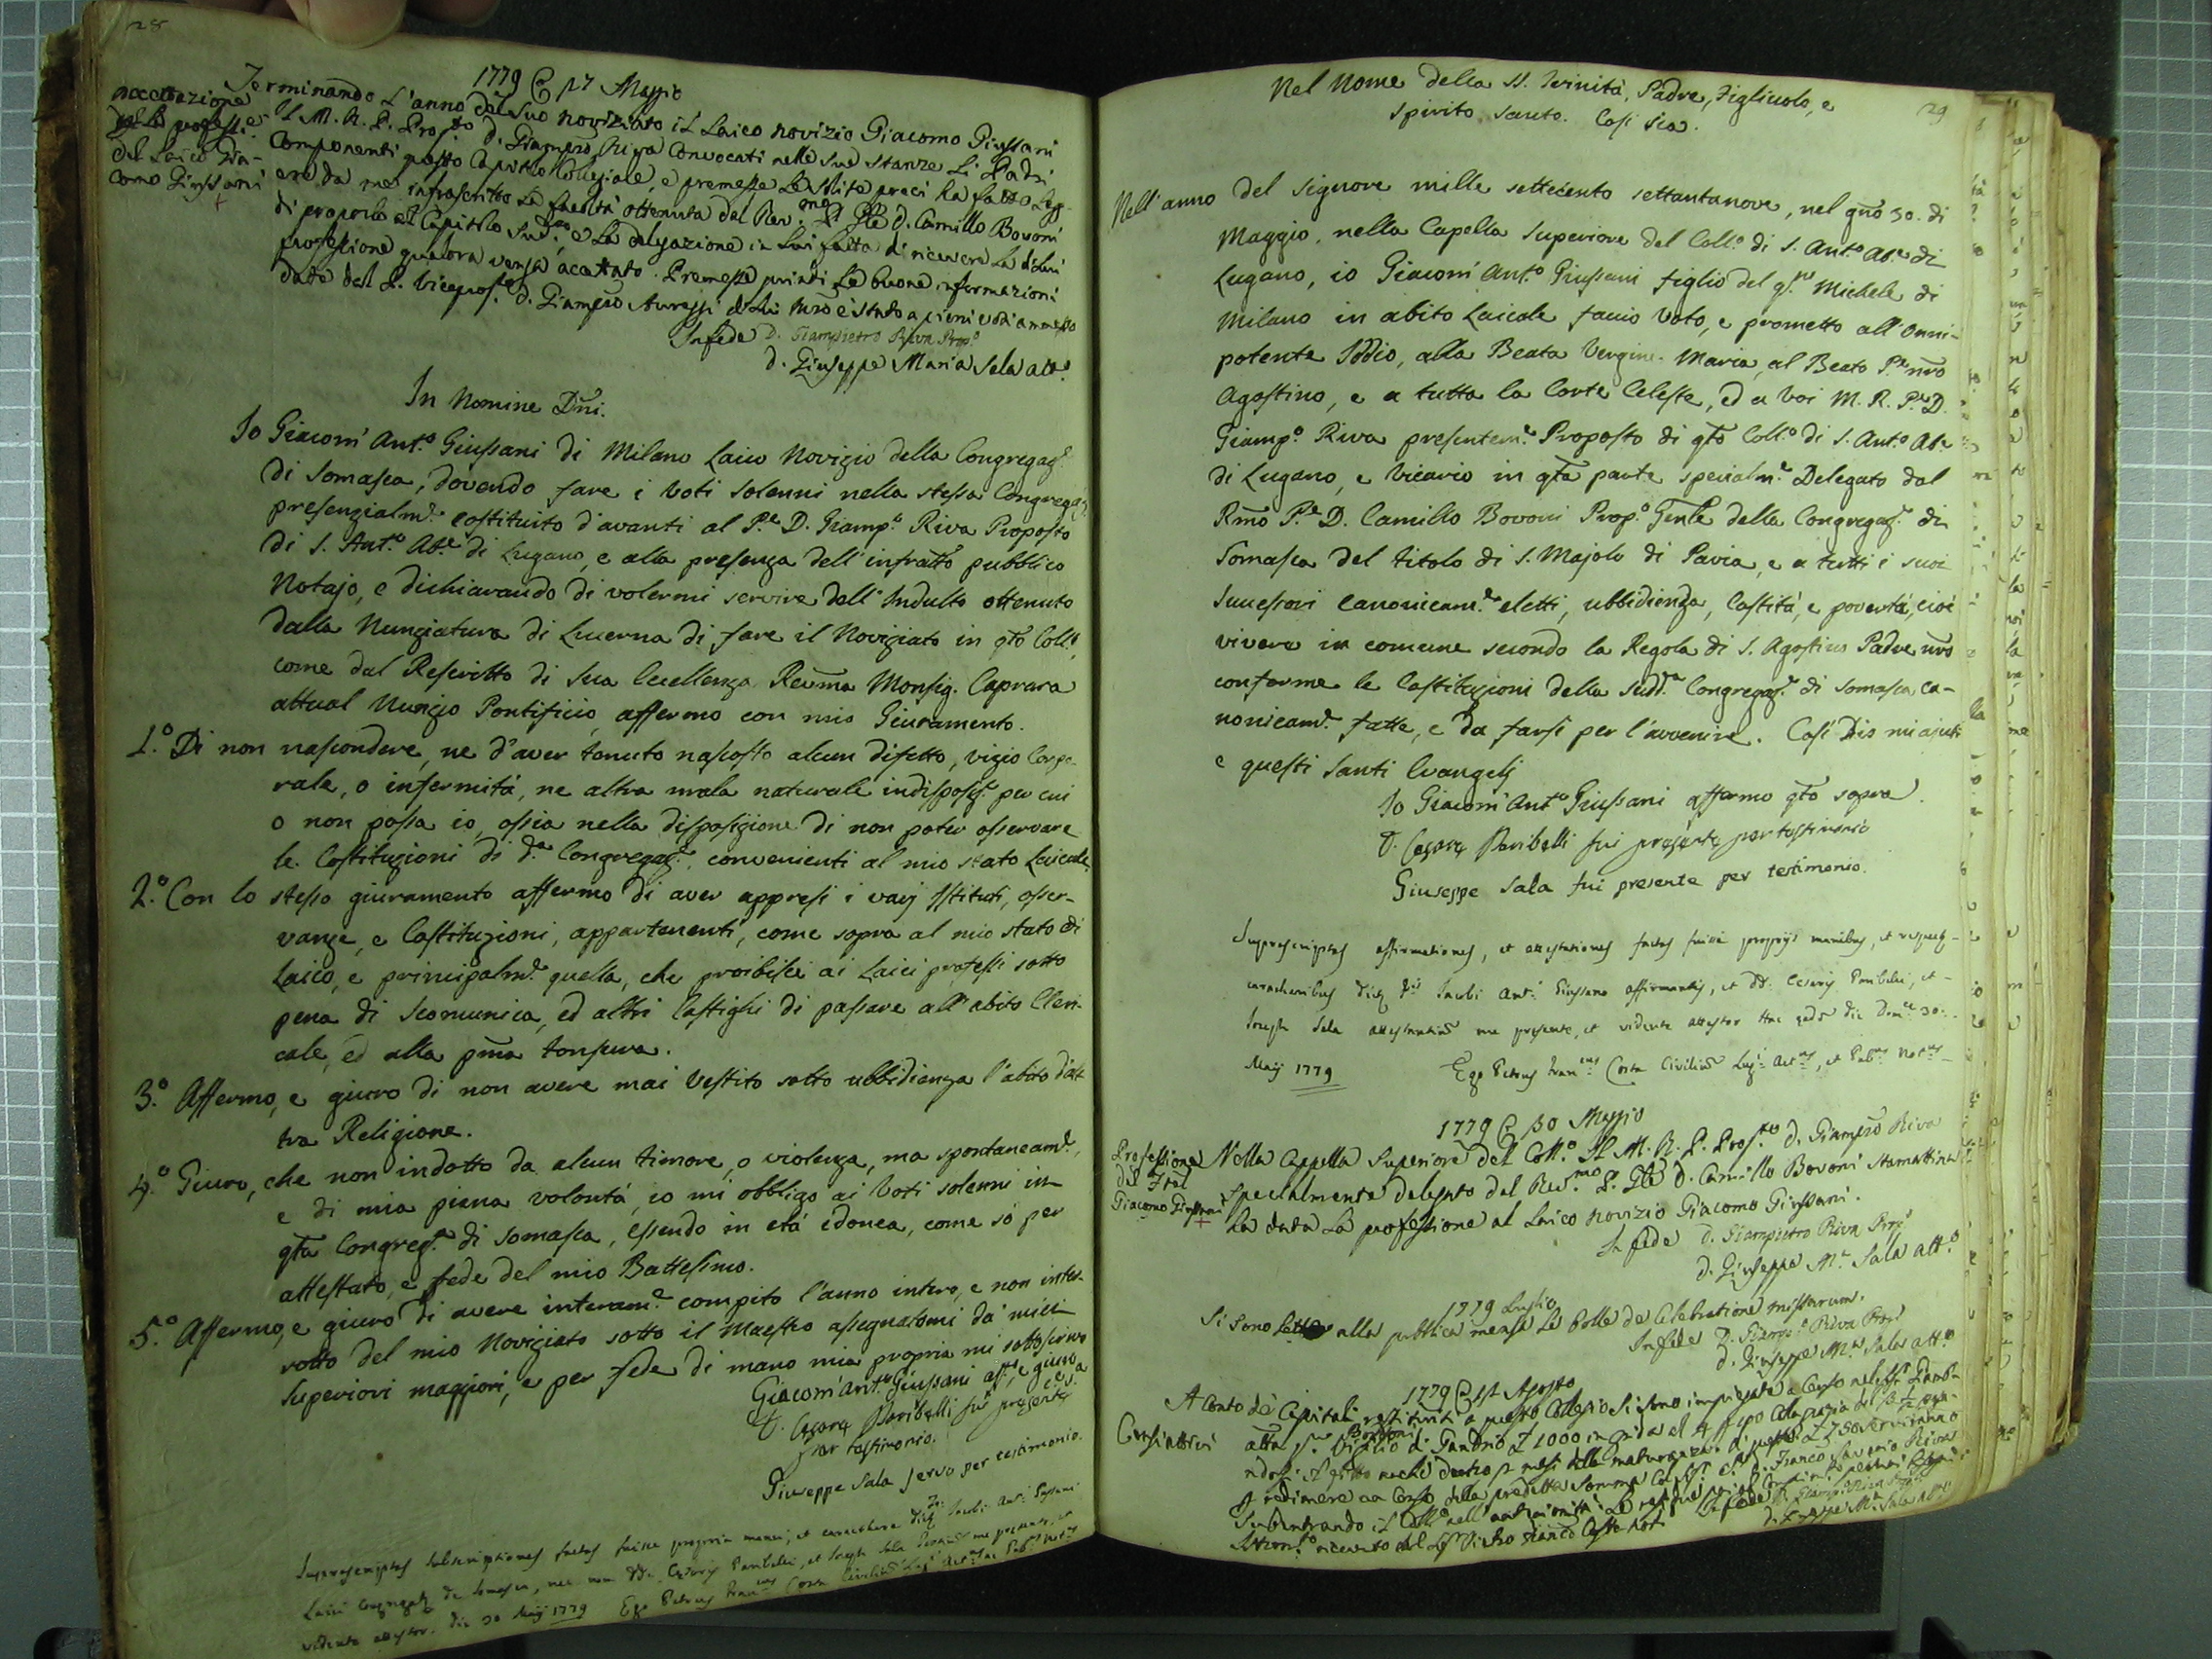 28
1779 17 Maggio
accettazione
della professe
del Laico Gia-
como Giussani
Terminando L'anno del suo noviziato il Laico novizio Giacomo Giussani
Il M. R. P. Prop.to d. Giampro Riva Convocati nelle sue stanze Li Padri
Componenti questo Capitolo Collegiale, e premesse Le solite preci ha fatto Legg-
ere da me infrascritto La facoltà ottenuta dal Rev.mo P. Gle d. Camillo Bovoni
di proporlo al Capitolo sud.o, e La delegazione in Lui fatta di ricevere La di Lui
professione qualora venga accettato. Premesse quindi Le buone informazioni
date dal P. Viceprop.to d. Giampro è stato a pieni voti ammesso
In fede D. Giampietro Riva Prop.o
d. Giuseppe Maria Sala att.o
In Nomine Dñi.
Io Giacom' Ant.o Giussani di Milano Laico Novizio della Congregaz.e
di Somasca, dovendo fare i Voti solenni nella stessa Congregaz.e
presenzialm.e costituito d'avanti al P.e D. Giamp.o Riva Proposto
di S. Ant.o Ab.e di Lugano, e alla presenza dell'infratto pubblico
Notajo, e dichiarando di volermi servire dell'Indulto ottenuto
dalla Nunziatura di Lucerna di fare il Noviziato in qto Coll.o,
come dal Rescritto di Sua Eccellenza Reuma Monsig. Caprara
attual Nunzio Pontificio, affermo con mio Giuramento.
1.o Di non nascondere, ne d'aver tenuto nascosto alcun difetto, vizio Corpo-
rale, o infermità, ne altra mala naturale indisposiz.e per cui
o non possa io, ossia nella disposizione di non poter osservare
le Costituzioni di d.a Congregaz.e, convenienti al mio stato Laicale.
2.o Con lo stesso giuramento affermo di aver appresi i varj Istituti, osser-
vanze, e Costituzioni, appartenenti, come sopra al mio stato di
Laico, e principalm.e quella, che proibisce ai Laici professi sotto
pena di Scomunica, ed altri Castighi di passare all'abito Cleri-
cale, ed alla pma tonsura.
3.o Affermo, e giuro di non avere mai Vestito sotto ubbidienza l'abito d'al-
tra Religione.
4.o Giuro, che non indotto da alcun timore, o violenza, ma spontaneam.e,
e di mia piena volontà, io mi obbligo ai Voti solenni in
qta Congreg.e di Somasca, essendo in età idonea, come sò per
attestato, e fede del mio Battesimo.
5.o Affermo, e giuro di avere interam.e compito l'anno intero, e non inter-
rotto del mio Noviziato sotto il Maestro assegnatomi da miei
Superiori maggiori, e per fede di mano mia propria mi sottoscrivo
Giacom' Ant.o Giussani aff.o, e giuro
D. Cesare Paribelli fui presente
per testimonio.
Giuseppe Sala servo per testimonio.
Suprascriptas subscriptiones factas fuisse propria manu, et caractere Jacobi Ant.i Giussani
Laici Congregat. de Somasca, nec non DD. Cesaris Paribelli, et Joseph Sala me presente, et
vidente attestor. die 30 Maij 1779 Ego Petrus Fran.cus Costa
29
Nel Nome della SS. Trinità, Padre, Figliuolo, e
Spirito Santo. Così sia.
Nell'anno del Signore mille settecento settantanove, nel gno 30. di
Maggio, nella Capella Superiore del Coll.o di S. Ant.o Ab.e di
Lugano, io Giacom' Ant.o Giussani figlio del q.m Michele di
Milano in abito Laicale faccio Voto, e prometto all'Onni-
potente Iddio, alla Beata Vergine Maria, al Beato P.e nrõ
Agostino, e a tutta la Corte Celeste, ed a Voi M. R. P.e D.
Giamp.o Riva presentem.e Proposto di qto Coll.o di S. Ant.o Ab.e
di Lugano, e Vicario in qta parte specialm.e Delegato dal
Rmo P.e D. Camillo Bovoni Prop.o Gnle della Congregaz.e di
Somasca del titolo di S. Majolo di Pavia, e a tutti i suoi
Successori canonicam.e eletti, ubbidienza, Castità, e povertà, cioè
vivere in comune secondo la Regola di S. Agostino Padre nrõ
conforme le Costituzioni della sudd.a Congregaz.e di Somasca ca-
nonicam.e fatte, e da farsi per l'avvenire. Così Dio mi ajuti
e questi Santi Evangelj
Io Giacom' Ant.o Giussani affermo qto sopra.
D. Cesare Paribelli fui presente per testimonio
Giuseppe Sala fui presente per testimonio.
Suprascriptas affirmationes, et attestationes factas fuisse proprijs manibus, et respect-
caracteribus Jacobi Ant.i Giussani affirmantis, et DD. Cesaris Paribelli, et
Joseph Sala attestantium me presente, et vidente attestor hac die 30.
Maij 1779 Ego Petrus Fran.cus Costa
1779 30 Maggio
Professione
del Frel
Giacomo Giussani
Nella Cappella Superiore del Coll.o Il M. R. P. Prop.to d. Giampro Riva
specialmente delegato dal Rev.mo P. Gle d. Camillo Bovoni stamattina
ha data La professione al Laico novizio Giacomo Giussani.
In fede D. Giampietro Riva Prop.o
d. Giuseppe M.a Sala att.o
1779 Luglio
Si sono Lette alla pubblica mensa Le Bolle de Celebratione missarum.
In fede D. Giamp.o Riva Prop.o
d. Giuseppe M.a Sala att.o
1779 Agosto
Censi attivi
A Conto de Capitali restituiti a questo Collegio si sono impiegate a Censo
di Gandria £ 1000
a redimere un Censo della predetta somma
Subentrando il Coll.o
In fede D. Giamp.o Riva Prop.o
d. Giuseppe M.a Sala att.o